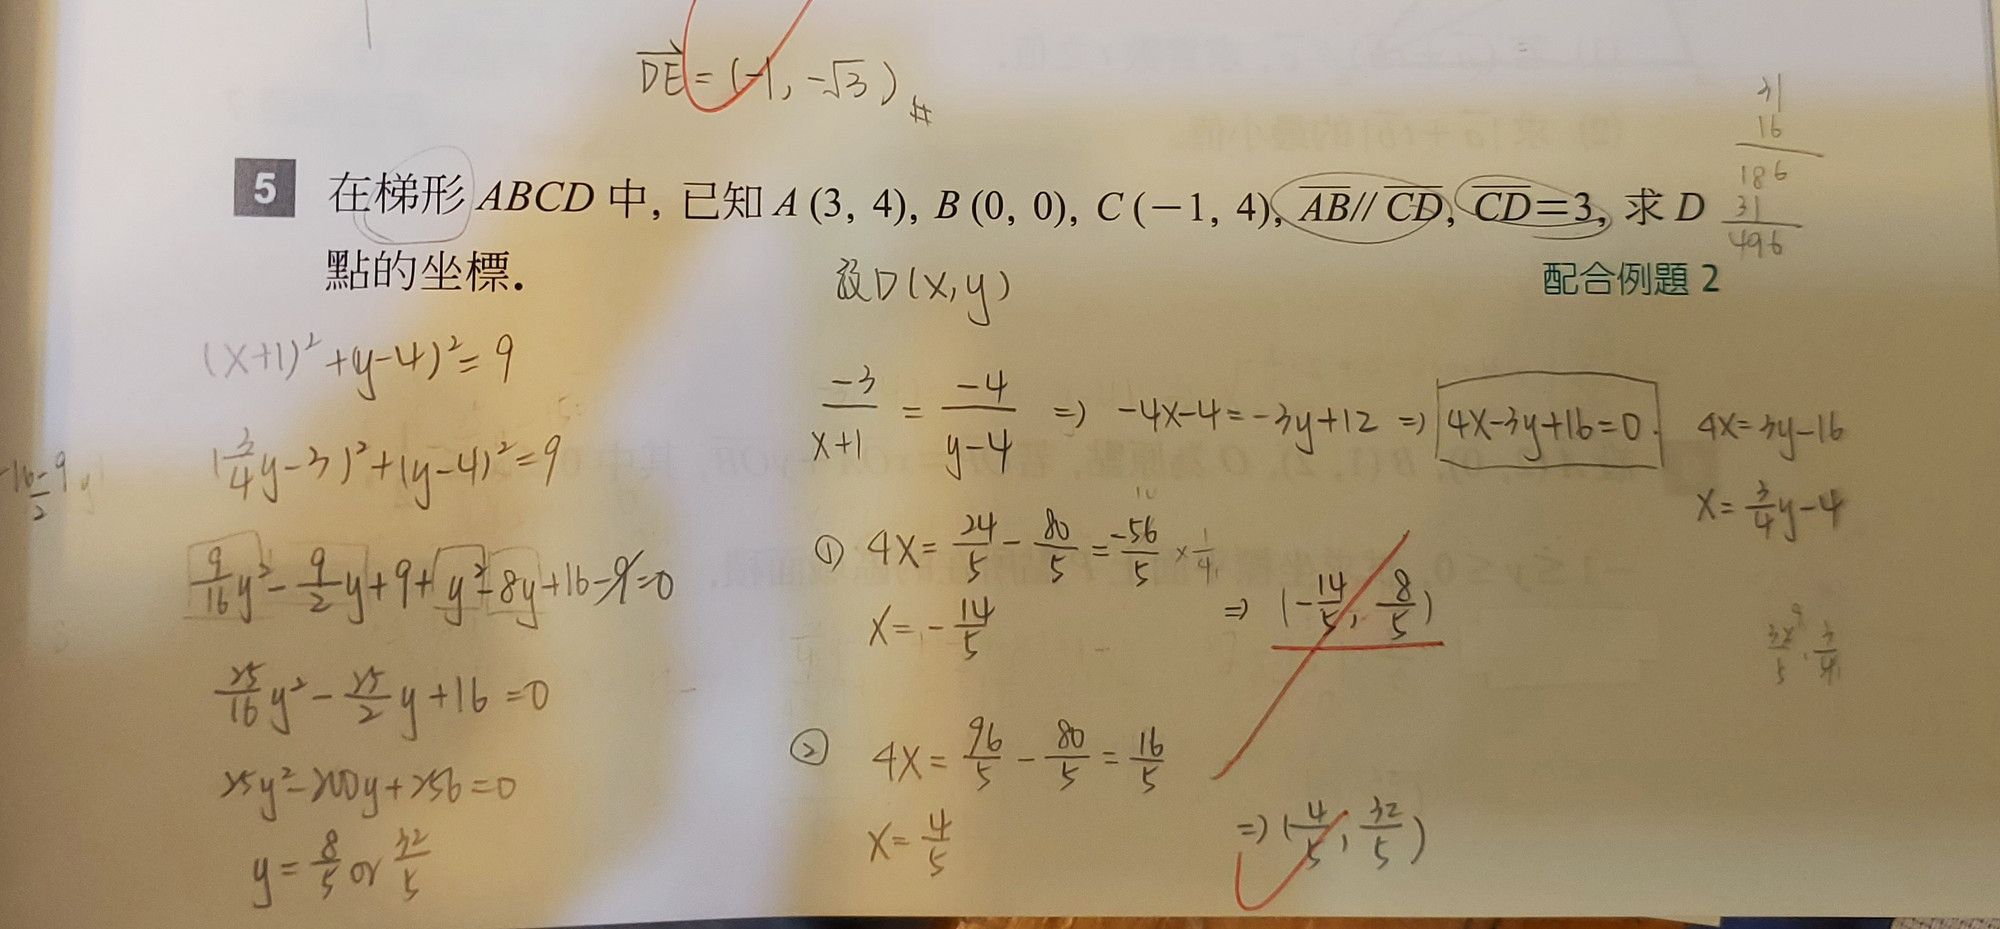 DE = (-1, -√3) #
31
16
186
31
496
5 在梯形 ABCD 中, 已知 A (3, 4), B (0, 0), C (-1, 4), AB // CD, CD = 3, 求 D
點的坐標.
配合例題 2
設D(x,y)
(x+1)²+(y-4)²=9
(3/4y-3)²+(y-4)²=9
9/16y²-9/2y+9+y²-8y+16-9=0
25/16y²-25/2y+16=0
25y²-200y+256=0
y=8/5 or 32/5
-3/x+1 = -4/y-4 => -4x-4=-3y+12 => 4x-3y+16=0.
4x=3y-16
x=3/4y-4
① 4x=24/5-80/5=-56/5×1/4
x=-14/5
=> (-14/5, 8/5)
② 4x=96/5-80/5=16/5
x=4/5
=> (4/5, 32/5)